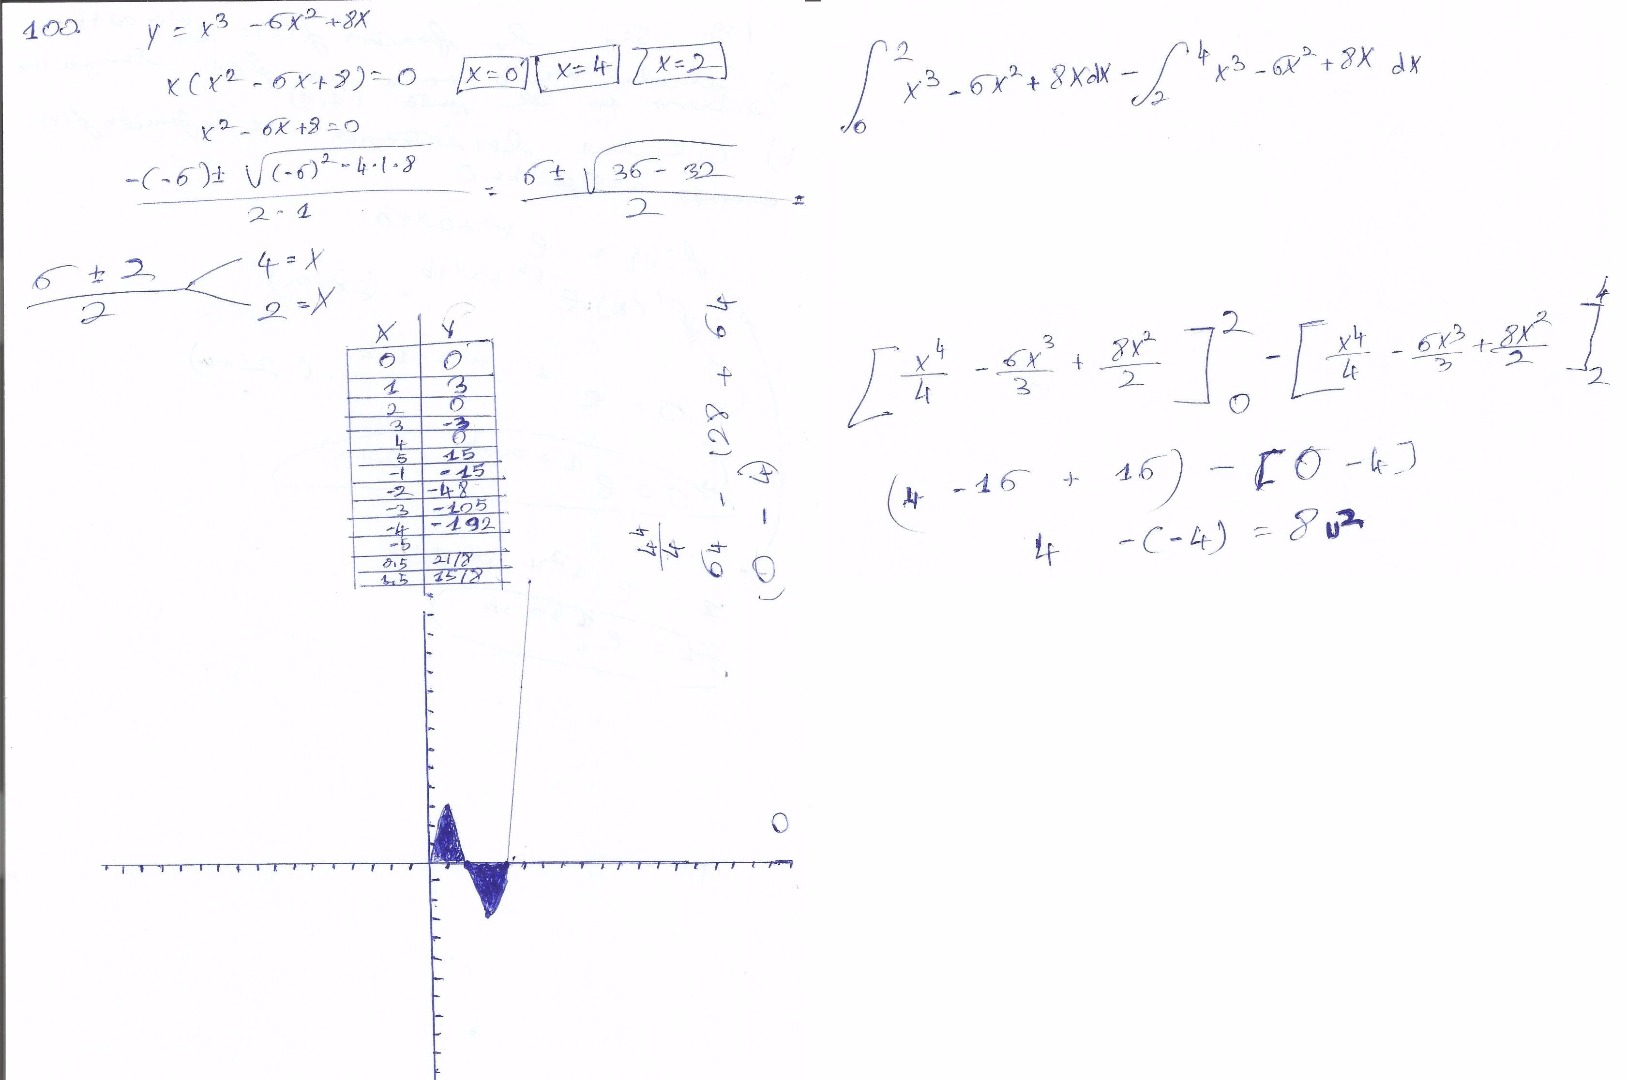 100. y = x³ - 6x² + 8x
x(x² - 6x + 8) = 0 x=0 x=4 x=2
x² - 6x + 8 = 0
-(-6) ± √(-6)² - 4·1·8 / 2·1 = 6 ± √36 - 32 / 2 =
6 ± 2 / 2 4 = x
2 = x
x y
0 0
1 3
2 0
3 -3
4 0
5 15
-1 -15
-2 -48
-3 -105
-4 -192
-5
0,5 21/8
1,5 15/8
64 - 128 + 64
0 - (4)
4⁴/4
0
∫₀² x³ - 6x² + 8x dx - ∫₂⁴ x³ - 6x² + 8x dx
[x⁴/4 - 6x³/3 + 8x²/2]₀² - [x⁴/4 - 6x³/3 + 8x²/2]₂⁴
(4 - 16 + 16) - [0 - 4]
4 - (-4) = 8 u²